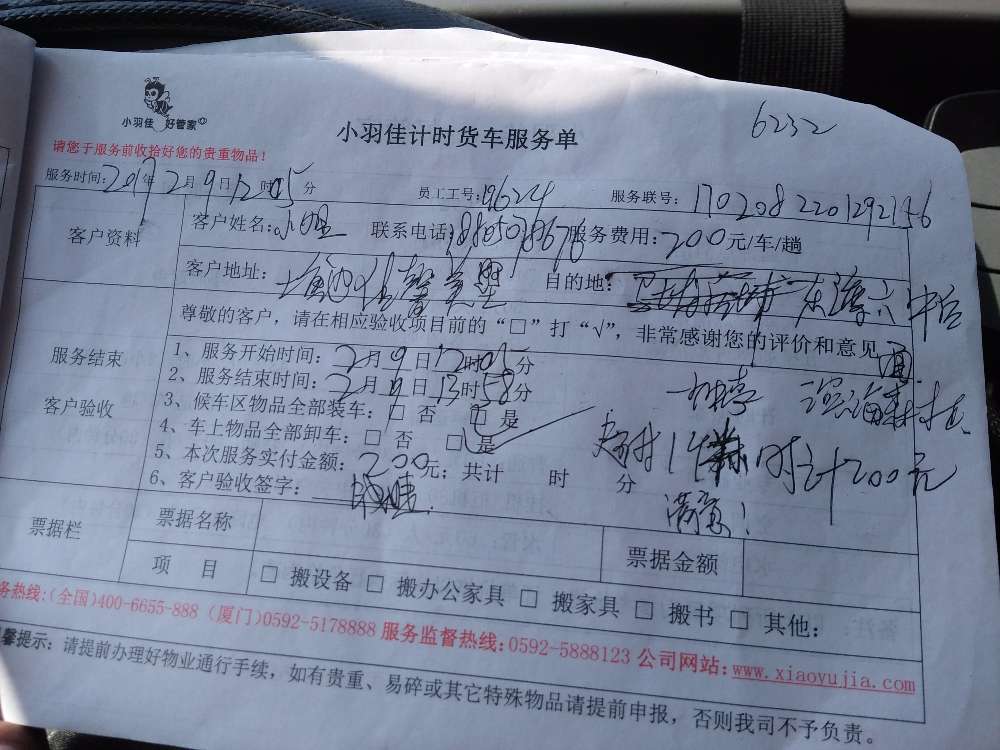 6232
小羽佳 好管家
小羽佳计时货车服务单
请您于服务前收拾好您的贵重物品！
服务时间：2017年2月9日12时05分 员工工号：19624 服务联号：1702082201292156
客户资料
客户姓名：小姐 联系电话： 服务费用：200元/车/趟
客户地址： 目的地：
尊敬的客户，请在相应验收项目前的“□”打“√”，非常感谢您的评价和意见
服务结束
客户验收
1、服务开始时间：2月9日12时05分
2、服务结束时间：2月9日13时58分
3、候车区物品全部装车：□ 否 □ 是
4、车上物品全部卸车：□ 否 □ 是
5、本次服务实付金额：200元；共计 时 分
时计200元
6、客户验收签字：
满意！
票据栏
票据名称 票据金额
项 目 □ 搬设备 □ 搬办公家具 □ 搬家具 □ 搬书 □ 其他：
务热线：(全国)400-6655-888 (厦门)0592-5178888 服务监督热线：0592-5888123 公司网站：www.xiaoyujia.com
馨提示：请提前办理好物业通行手续，如有贵重、易碎或其它特殊物品请提前申报，否则我司不予负责。